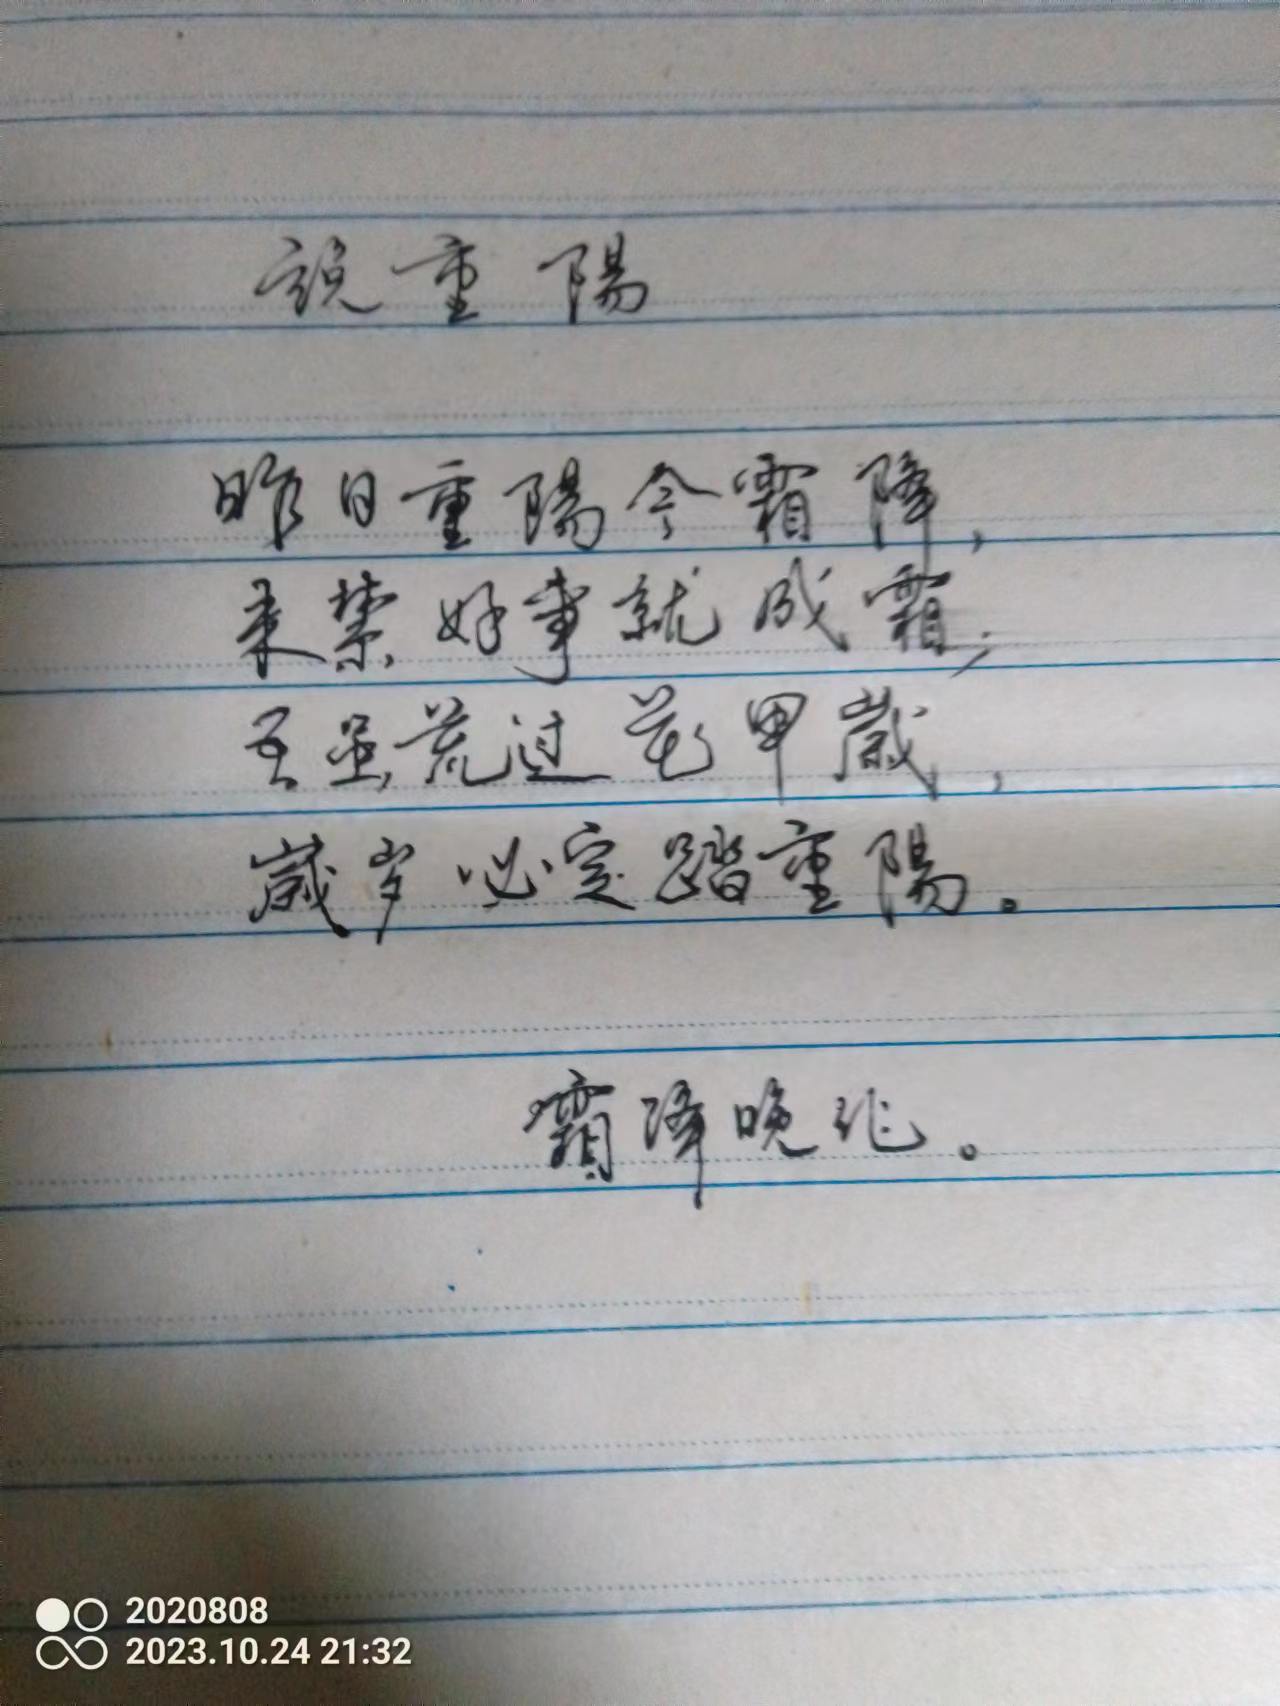 説重陽
昨日重陽今霜降，
来禁好事就成霜，
互虽荒过花甲歲，
歲岁必定踏重陽。
霜降晚作。
2020808
2023.10.24 21:32